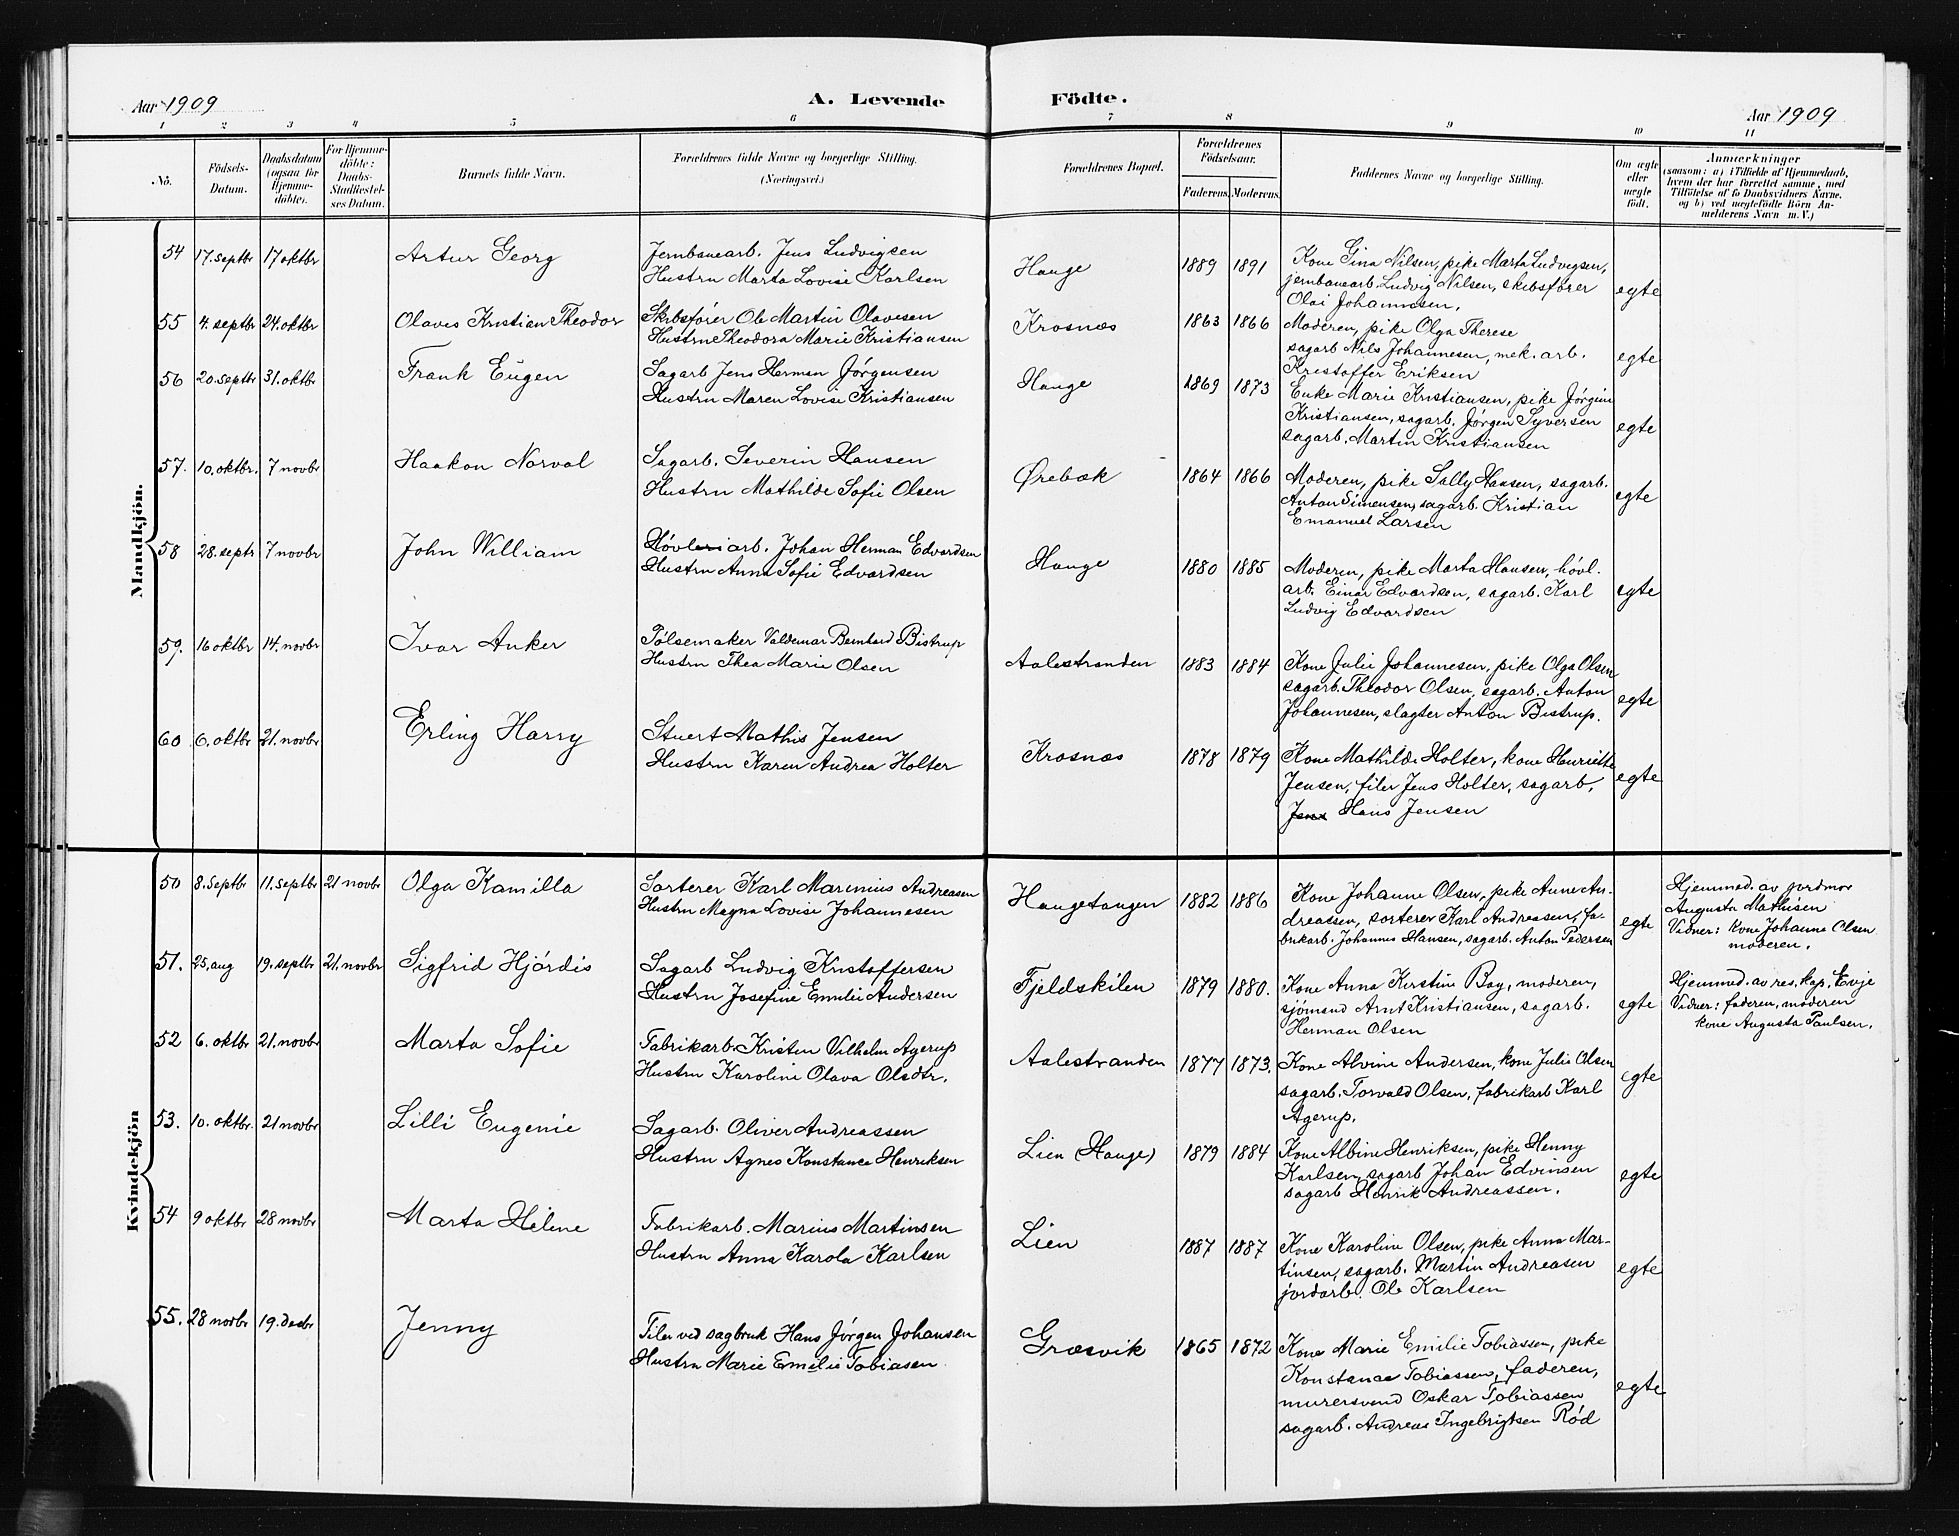 Aar 1909 A. Levende Födte. Aar 1909
1 2 3 4 5 6 7 8 9 10 11
No. Födsels-Datum. Daabsdatum (ogsaa for Hjemmedöbte). For Hjemmedöbte: Daabs-Stadfæstelses Datum. Barnets fulde Navn. Forældrenes fulde Navne og borgerlige Stilling. (Næringsvei.) Forældrenes Bopæl. Forældrenes Födselsaar. Faderens. Moderens. Faddernes Navne og borgerlige Stilling. Om ægte eller uægte født. Anmærkninger (saasom: a) i Tilfælde af Hjemmedaab, hvem der har forrettet samme, med Tilföielse af to Daabsvidners Navne. og b) ved uægtefödte Börn Anmelderens Navn m. V.)
Mandkjön.
54 17. septbr 17 oktbr Artur Georg Jernbanearb. Jens Ludvigsen
Hustru Marta Lovise Karlsen Hauge 1889 1891 Kone Gina Nilsen, pike Marta Ludvigsen,
jernbanearb. Ludvig Nilsen, skibsfører
Olai Johannesen. egte
55 4. septbr 24. oktbr Olaves Kristian Theodor Skibsfører Ole Martin Olavesen
Hustru Theodora Marie Kristiansen Krosnæs 1863 1866 Moderen, pike Olga Therese
sagarb Nils Johannesen, mek. arb.
Kristoffer Eriksen egte
56 20. septbr 31. oktbr Frank Eugen Sagarb Jens Herman Jørgensen
Hustru Maren Lovise Kristiansen Hauge 1869 1873 Enke Marie Kristiansen, pike Jørgine
Kristiansen, sagarb. Jørgen Syversen
sagarb. Martin Kristiansen egte
57. 10. oktbr. 7 novbr Haakon Norval Sagarb. Severin Hansen
Hustru Mathilde Sofie Olsen Ørebæk 1864 1866 Moderen, pike Sally Hansen, sagarb.
Anton Simensen, sagarb. Kristian
Emanuel Larsen egte
58 28. septr 7 novbr John William Høvleriarb. Johan Herman Edvardsen
Hustru Anna Sofie Edvardsen Hauge 1880 1885 Moderen, pike Marta Hansen, høvl.
arb. Einar Edvardsen, sagarb. Karl
Ludvig Edvardsen egte
59. 16 oktbr 14. novbr Ivar Anker Pølsemaker Valdemar Bernhard Bistrup
Hustru Thea Marie Olsen Aalestranden 1883 1884 Kone Julie Johannesen, pike Olga Olsen
sagarb. Theodor Olsen, sagarb. Anton
Johannesen, slagter Anton Bistrup. egte
60 6. oktbr 21. novbr Erling Harry Stuert Mathis Jensen
Hustru Karen Andrea Holter Krosnæs 1878 1879 Kone Mathilde Holter, kone Henriette
Jensen, filer Jens Holter, sagarb.
Jens Hans Jensen egte
Kvindekjön
50 8. septbr 11. septbr 21 novbr Olga Kamilla Sorterer Karl Marenius Andreasen
Hustru Magna Lovise Johannesen Haugetangen 1882 1886 Kone Johanne Olsen, pike Anne An-
dreassen, sorterer Karl Andreassen, fa-
brikarb. Johannes Hansen, sagarb. Anton Pedersen egte Hjemmed. av jordmor
Augusta Mathisen
Vidner: kone Johanne Olsen
moderen.
51. 25. aug 19. septbr 21. novbr Sigfrid Hjórdis Sagarb Ludvig Kristoffersen
Hustru Josefine Emilie Andersen Fjeldskilen 1879 1880. Kone Anna Kirstine Bay, moderen,
sjømand Arnt Kristiansen, sagarb.
Herman Olsen egte Hjemmed. av res. kap. Evje
Vidner: faderen, moderen
kone Augusta Paulsen.
52 6. oktbr 21. novbr Marta Sofie Fabrikarb. Kristen Vilhelm Agerup
Hustru Karoline Olava Olsdtr. Aalestranden 1877 1873. Kone Alvine Andersen, kone Julie Olsen
sagarb. Torvald Olsen, fabrikarb Karl
Agerup. egte
53. 10. oktbr. 21 novbr Lilli Eugenie Sagarb. Oliver Andreassen
Hustru Agnes Konstance Henriksen Lien (Hauge) 1879 1884 Kone Albine Henriksen, pike Henny
Karlsen, sagarb Johan Edvinsen
sagarb Henrik Andreassen. egte
54 9 oktbr 28 novbr Marta Helene Fabrikarb. Marius Martinsen
Hustru Anna Karola Karlsen Lien 1887 1887 Kone Karoline Olsen, pike Anna Mar-
tinsen, sagarb. Martin Andreasen
jordarb. Ole Karlsen egte
55. 28 novbr 19. decbr Jenny Filer ved sagbruk Hans Jørgen Johansen
Hustru Marie Emelie Tobiasen Græsvik 1865 1872 Kone Marie Emilie Tobiassen, pike
Konstance Tobiassen, faderen,
murersvend Oskar Tobiassen
sagarb. Andreas Ingebrigtsen Rød egte